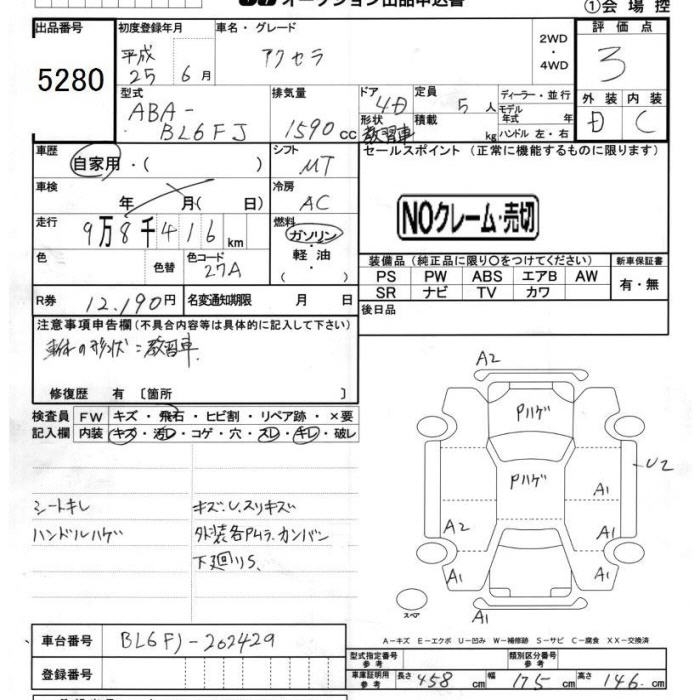 オークション出品申込書
①会場控
出品番号
5280
初度登録年月
平成
25 6月
車名・グレード
アクセラ
2WD
・
4WD
評価点
3
外装 内装
D C
型式
ABA-
BL6FJ
排気量
1590cc
ドア
4D
形状
教習車
定員
5人
積載
kg
ディーラー・並行
モデル
年式 年
ハンドル 左・右
車歴
自家用・( )
シフト
MT
セールスポイント (正常に機能するものに限ります)
車検
年 月( 日)
冷房
AC
NOクレーム・売切
走行
9万8千416km
燃料
ガソリン
軽油
( )
色
色替
色コード
27A
装備品(純正品に限り○をつけてください)
新車保証書
PS PW ABS エアB AW
SR ナビ TV カワ
有・無
R券
12,190円
名変通知期限 月 日
後日品
注意事項申告欄(不具合内容等は具体的に記入して下さい)
車体の形状=教習車.
修復歴 有 〔箇所 〕
検査員
記入欄
FW キズ・飛石・ヒビ割・リペア跡・×要
内装 キズ・汚レ・コゲ・穴・スレ・キレ・破レ
シートキレ
ハンドルハゲ
キズ.U.スリキズ
外装各PムラカンバN
下廻りS.
A2
Pハゲ
Pハゲ
U2
A1
A2
A1
A1
A1
A1
スペア
A-キズ E-エクボ U-凹み W-補修跡 S-サビ C-腐食 XX-交換済
車台番号
BL6FJ-202429
登録番号
型式指定番号
参考
類別区分番号
参考
車庫証明用
参考
長さ 458cm 幅 175cm 高さ 146cm